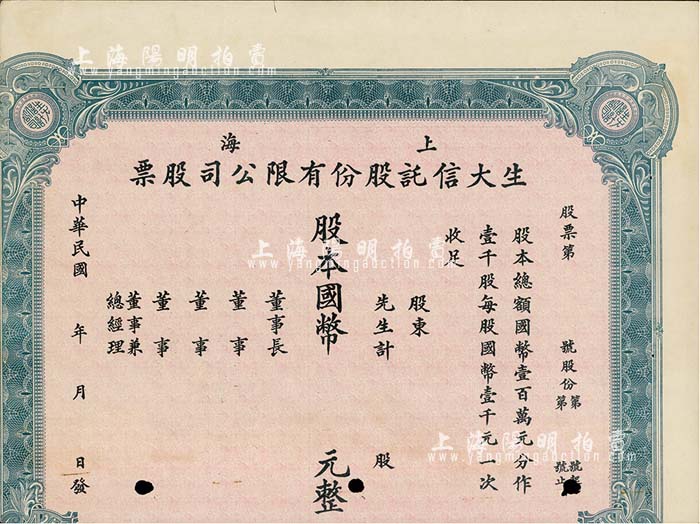 上海陽明拍賣
www.yangmingauction.com
上海
生大信託股份有限公司股票
股票第 號股份第 號起
第 號止
股本總額國幣壹百萬元分作
壹千股每股國幣壹千元一次
收足
股東
先生計 股
股本國幣 元整
董事長
董事
董事
董事
董事兼
總經理
中華民國 年 月 日發
上海陽明拍賣
www.yangmingauction.com
上海陽明拍賣
www.yangmingauction.com